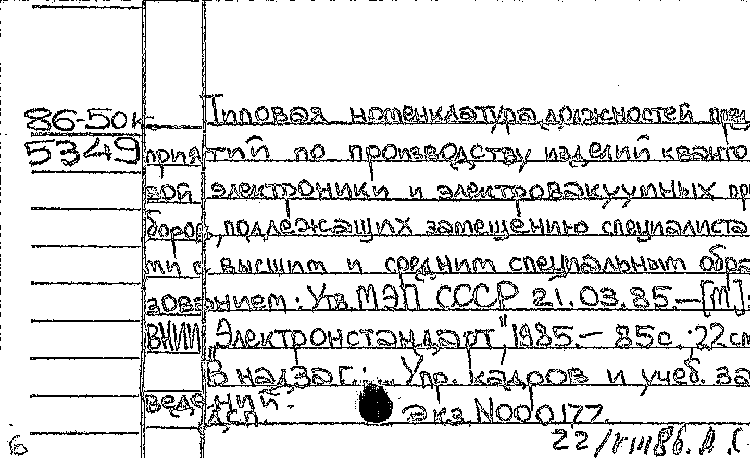 86-50к Типовая номенклатура должностей пред
5349 прия тий по производству изделий кванто
вой электроники и электровакуумных пр
боров, подлежащих замещению специалиста
ми с высшим и средним специальным обра
зованием: Утв. МЭП СССР 21.03.85.—[М]:
ВНИИ "Электронстандарт", 1985.— 85с.; 22см
В надзаг.:... Упр. кадров и учеб. за
ведений.
ДСП. Экз N000177.
6 22/VIII86.